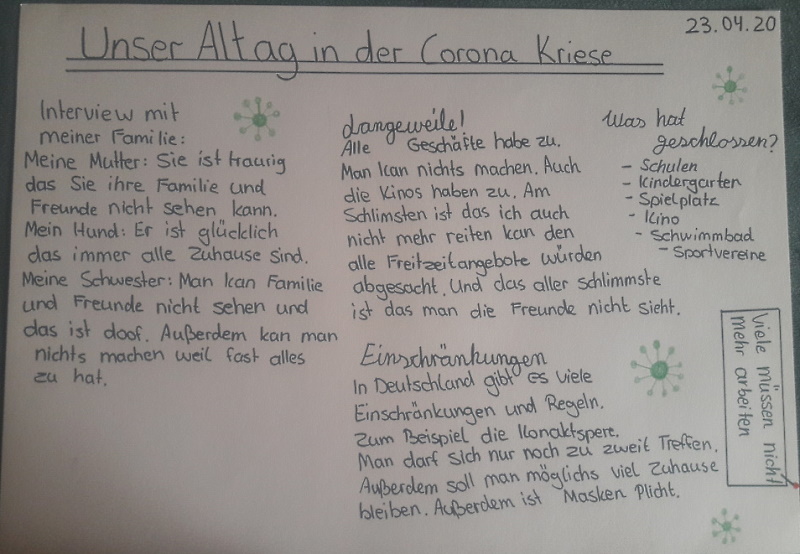 23.04.20
Unser Altag in der Corona Kriese
Interview mit
meiner Familie:
Meine Mutter: Sie ist traurig
das Sie ihre Familie und
Freunde nicht sehen kann.
Mein Hund: Er ist glücklich
das immer alle Zuhause sind.
Meine Schwester: Man kan Familie
und Freunde nicht sehen und
das ist doof. Außerdem kan man
nichts machen weil fast alles
zu hat.
Langeweile!
Alle Geschäfte habe zu.
Man kan nichts machen. Auch
die Kinos haben zu. Am
Schlimsten ist das ich auch
nicht mehr reiten kan den
alle Freitzeitangebote würden
abgesacht. Und das aller schlimmste
ist das man die Freunde nicht sieht.
Was hat
geschlossen?
- Schulen
- Kindergarten
- Spielplatz
- Kino
- Schwimmbad
- Sportvereine
Einschränkungen
In Deutschland gibt es viele
Einschränkungen und Regeln.
Zum Beispiel die Konaktspere.
Man darf sich nur noch zu zweit Treffen.
Außerdem soll man möglichs viel Zuhause
bleiben. Außerdem ist Masken Plicht.
Viele müssen nicht
mehr arbeiten